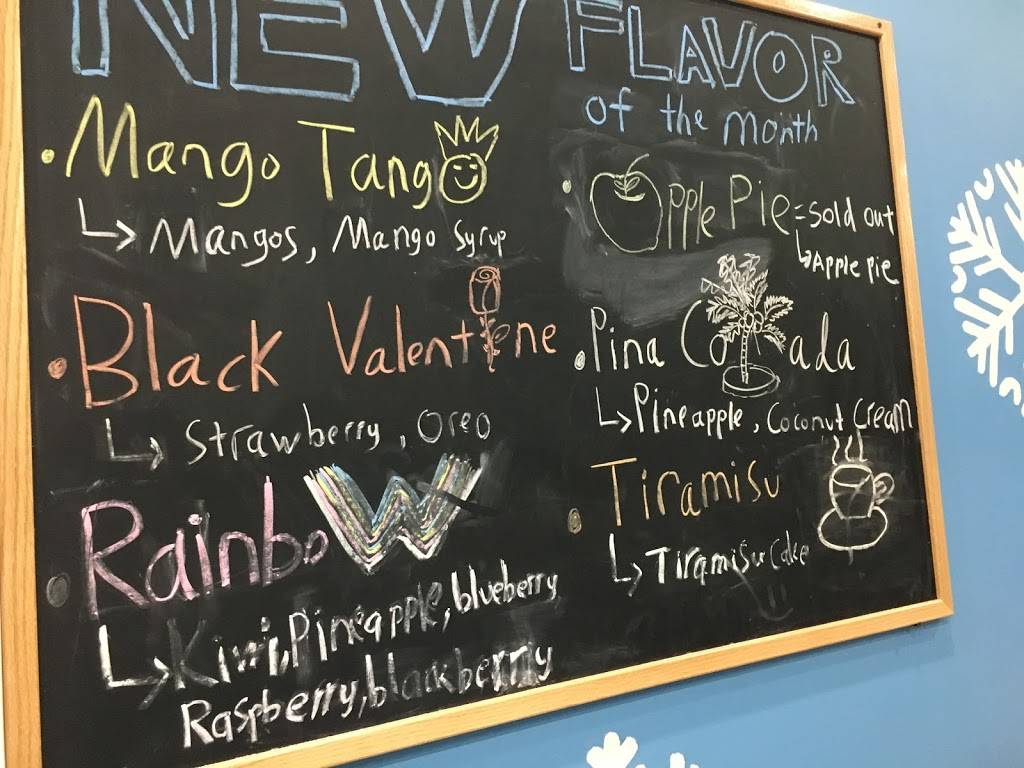 NEW FLAVOR
of the month
Mango Tango
Mangos, Mango Syrup
Black Valentine
Strawberry, Oreo
Rainbow
Kiwi, Pineapple, blueberry
Raspberry, blackberry
Apple Pie = Sold out
Apple pie
Pina Colada
Pineapple, Coconut Cream
Tiramisu
Tiramisu Cake